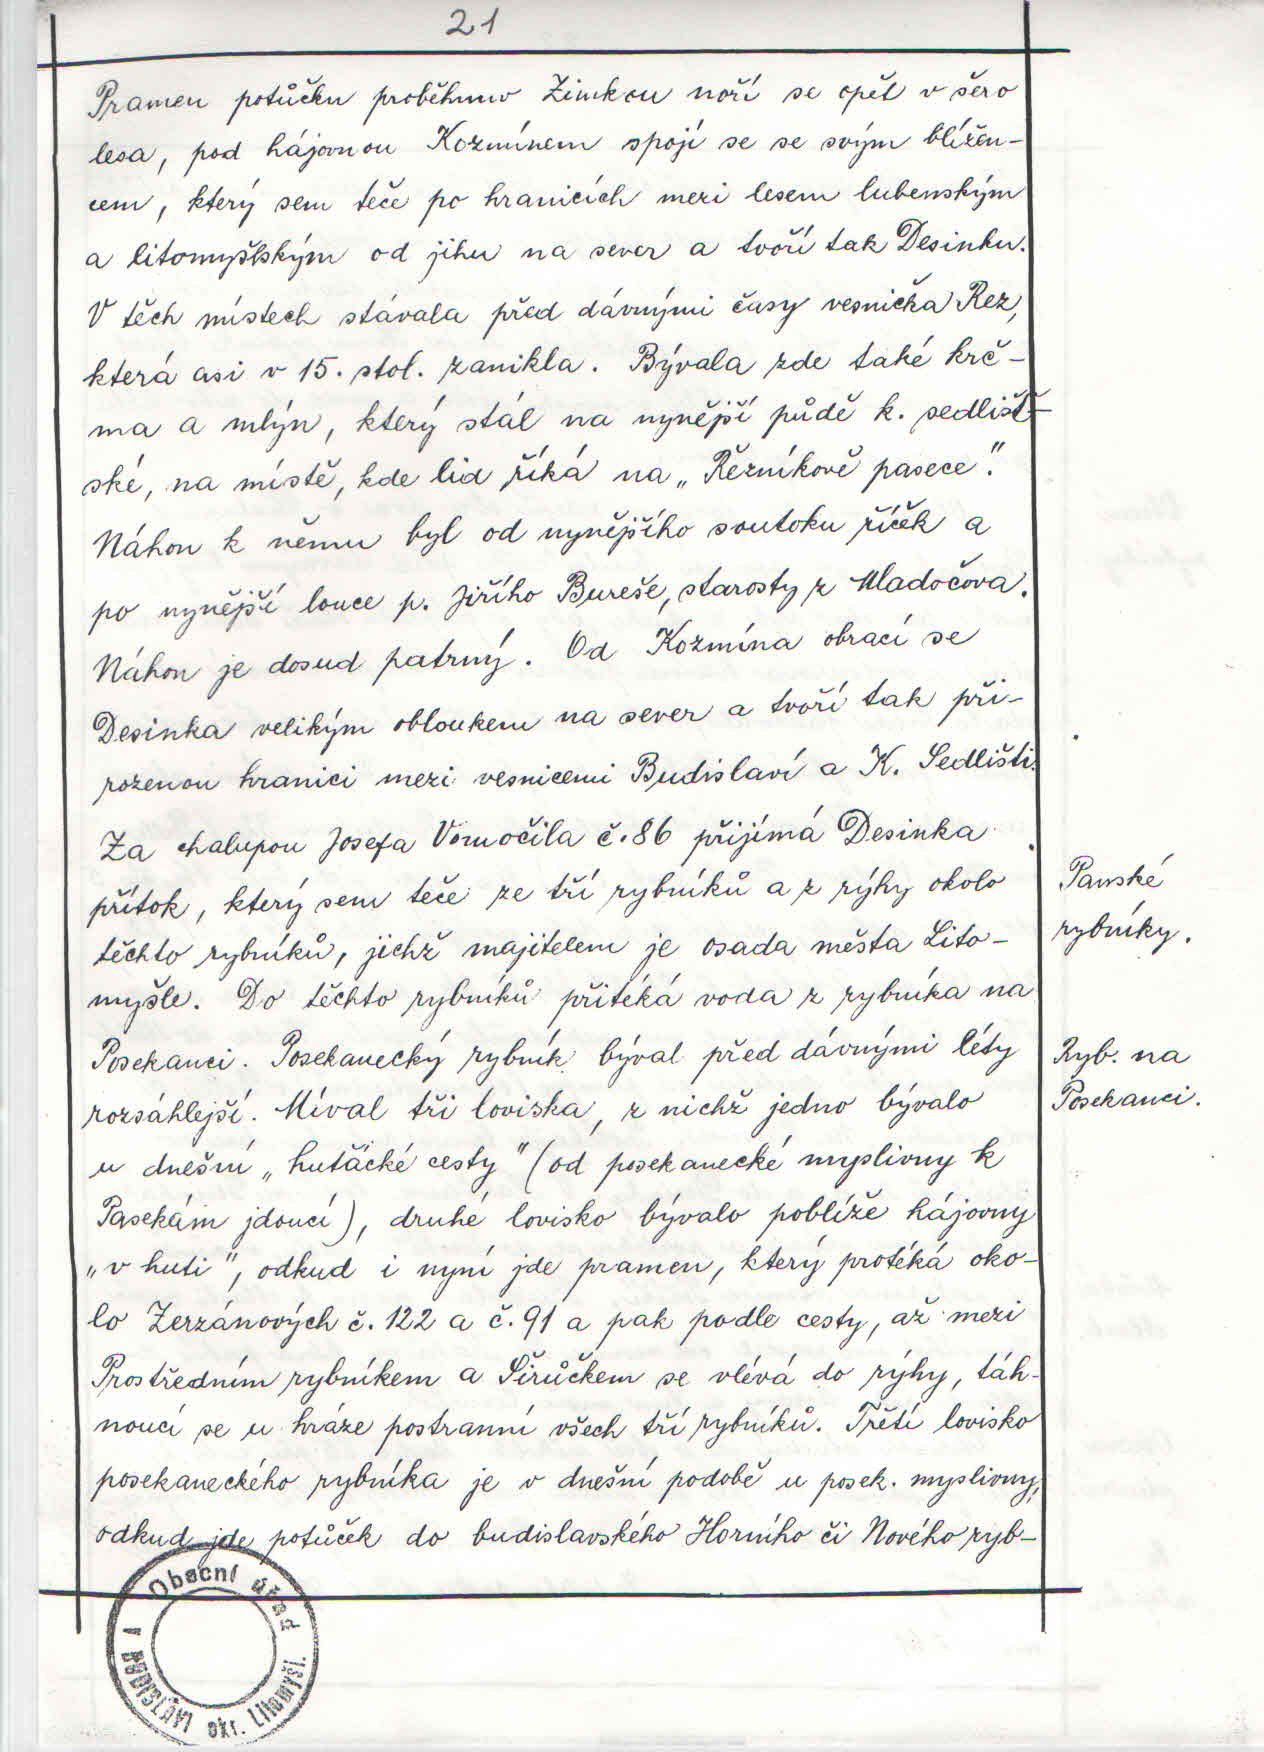 21
Pramen potůčku proběhnuv Zimkou noří se opět v šero
lesa, pod hájovnou Kozmínem spojí se se svým blížen-
cem, který sem teče po hranicích mezi lesem lubenským
a litomyšlským od jihu na sever a tvoří tak Desinku.
V těch místech stávala před dávnými časy vesnička Rez,
která asi v 15. stol. zanikla. Bývala zde také krč-
ma a mlýn, který stál na nynější půdě k. sedlišt-
ské, na místě, kde lid říká na „Řezníkově pasece".
Náhon k němu byl od nynějšího soutoku říček a
po nynější louce p. Jiřího Bureše, starosty z Mladočova.
Náhon je dosud patrný. Od Kozmína obrací se
Desinka velikým obloukem na sever a tvoří tak při-
rozenou hranici mezi vesnicemi Budislaví a K. Sedlišti.
Za chalupou Josefa Vomočila č. 86 přijímá Desinka
přítok, který sem teče ze tří rybníků a z rýhy okolo
Panské
těchto rybníků, jichž majitelem je osada města Lito-
rybníky.
myšle. Do těchto rybníků přitéká voda z rybníka na
Posekanci. Posekanecký rybník býval před dávnými léty
Ryb. na
rozsáhlejší. Míval tři loviska, z nichž jedno bývalo
Posekanci.
u dnešní „huťácké cesty" (od posekanecké myslivny k
Pasekám jdoucí), druhé lovisko bývalo poblíže hájovny
„v huti", odkud i nyní jde pramen, který protéká oko-
lo Zerzánových č. 122 a č. 91 a pak podle cesty, až mezi
Prostředním rybníkem a Širůčkem se vlévá do rýhy, táh-
noucí se u hráze postranní všech tří rybníků. Třetí lovisko
posekaneckého rybníka je v dnešní podobě u posek. myslivny,
odkud jde potůček do budislavského Horního či Nového ryb-
Obecní úřad
v BUDISLAVI
okr. Litomyšl.